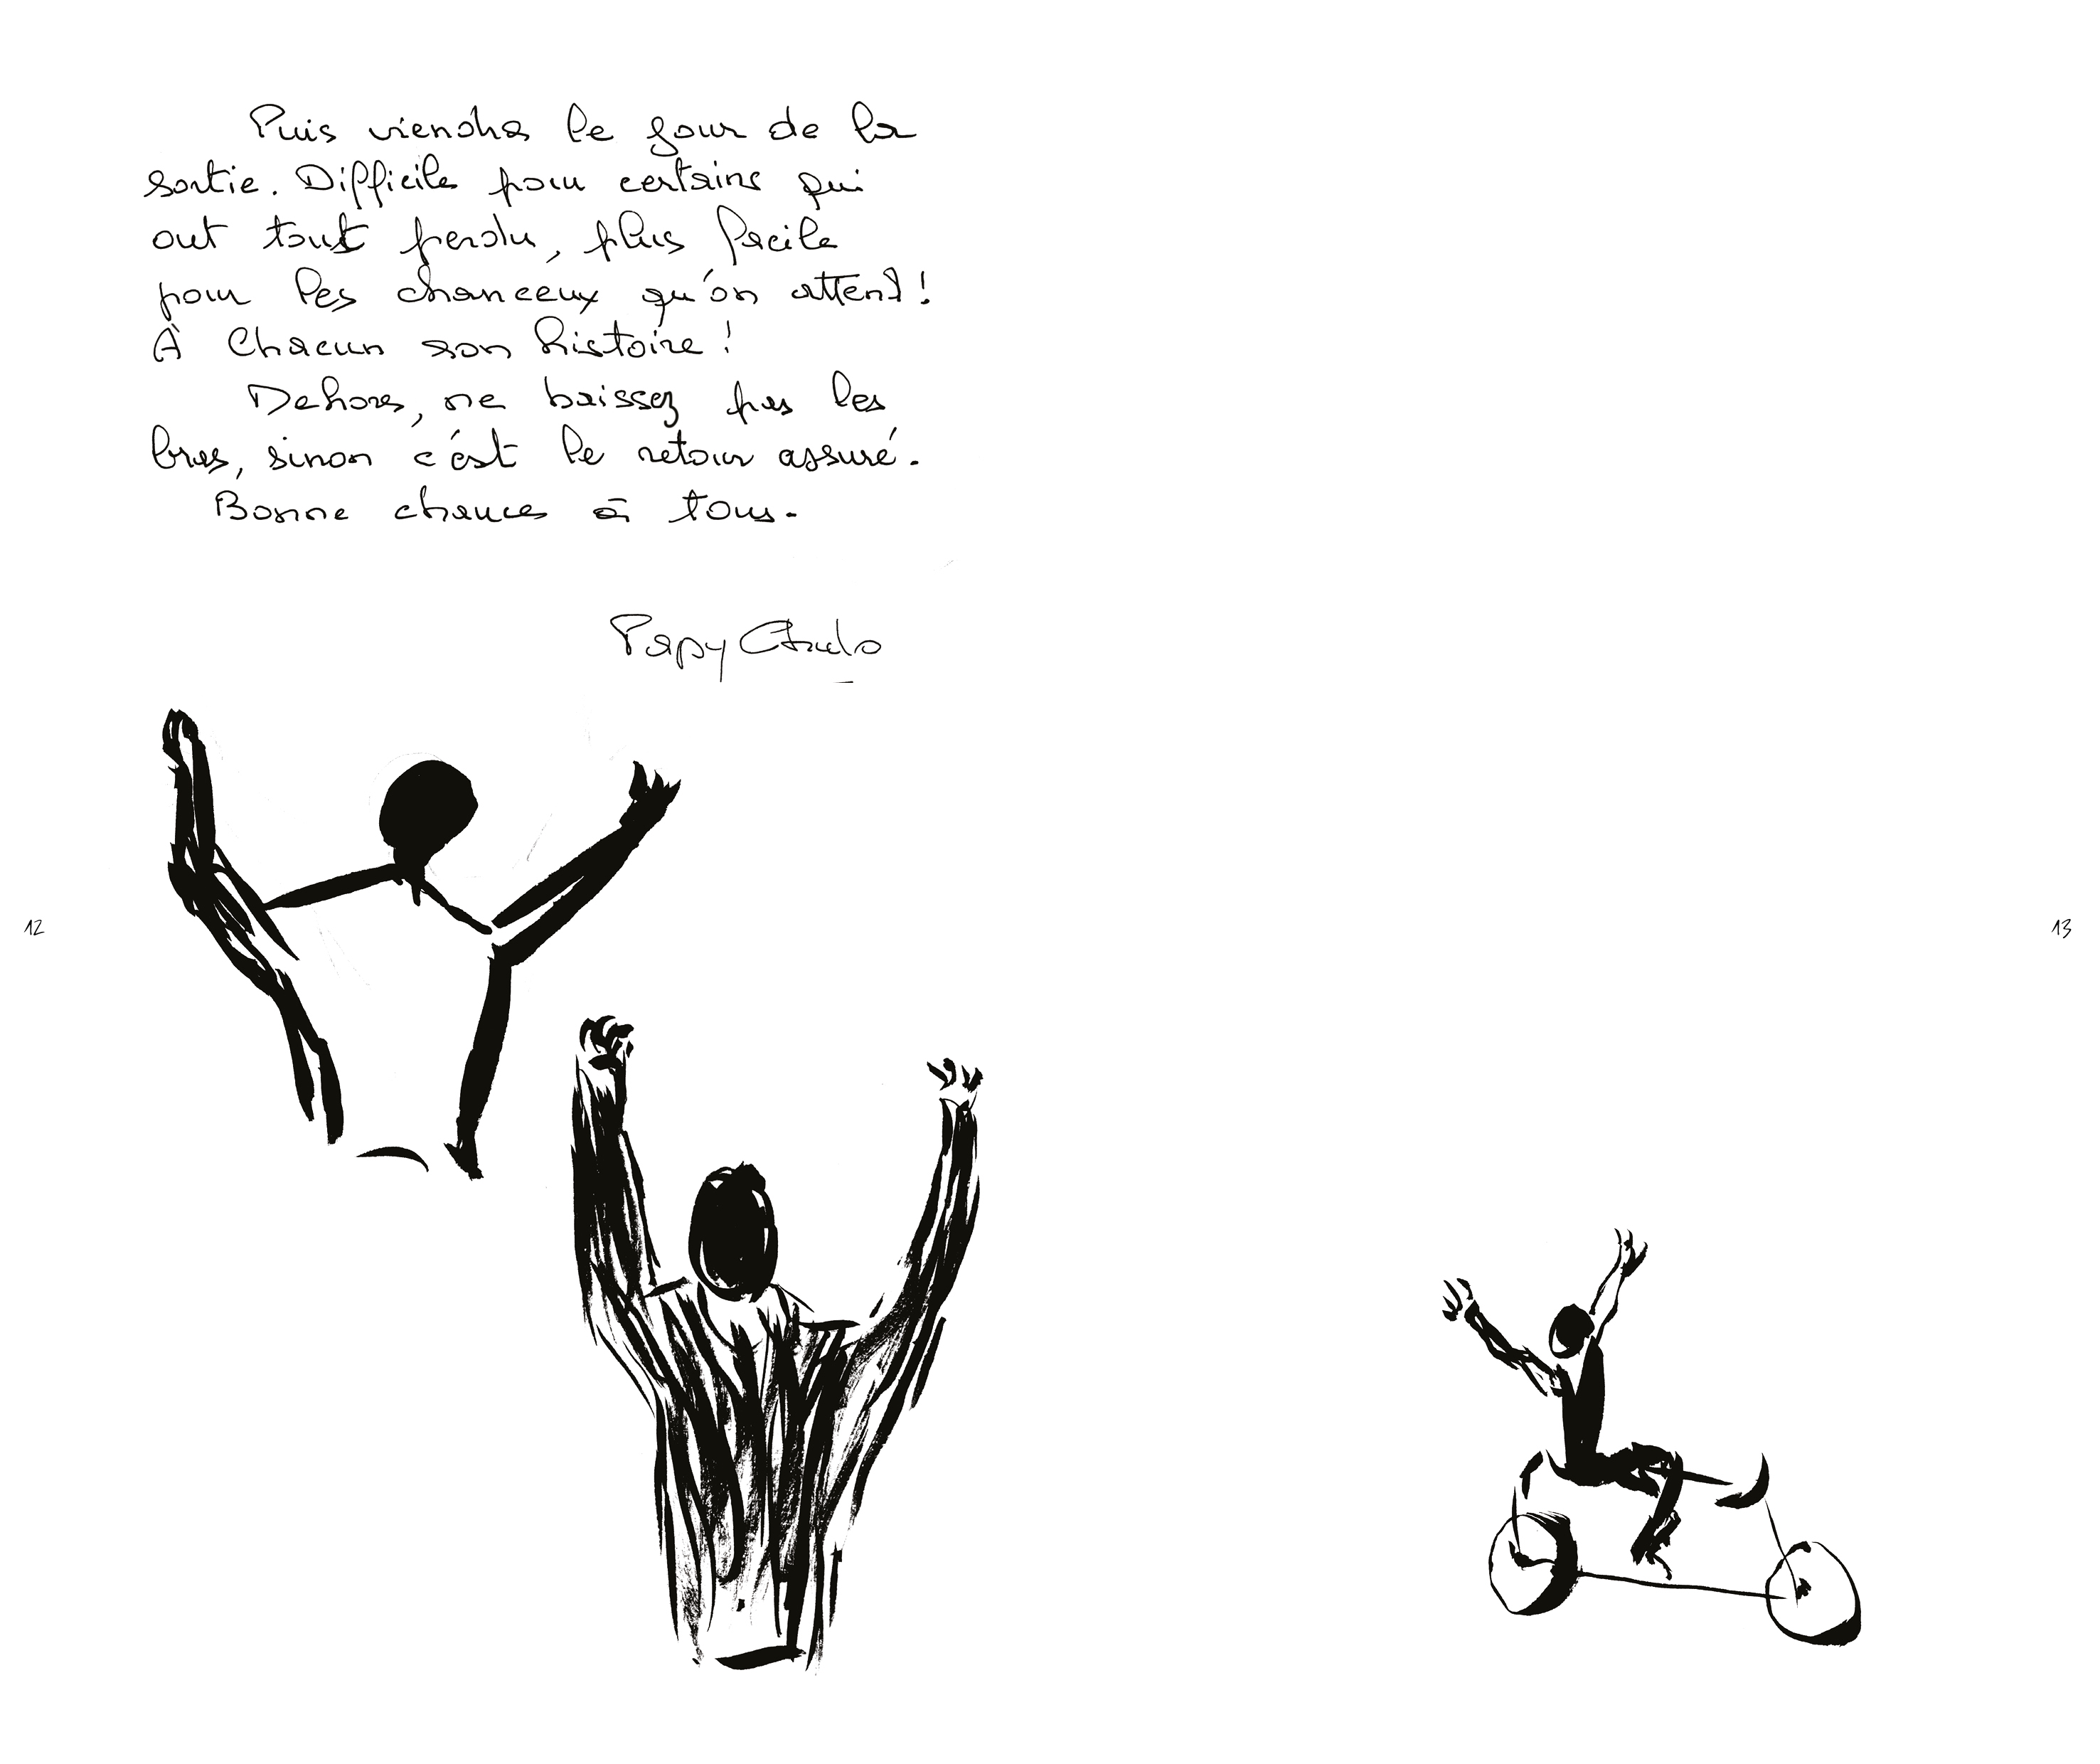 Puis viendra le jour de la
sortie. Difficile pour certains qui
ont tout perdu, plus facile
pour les chanceux qu'on attend !
À Chacun son histoire !
Dehors, ne baissez pas les
bras, sinon c'est le retour assuré.
Bonne chance à tous.
Papy Chulo
12
13